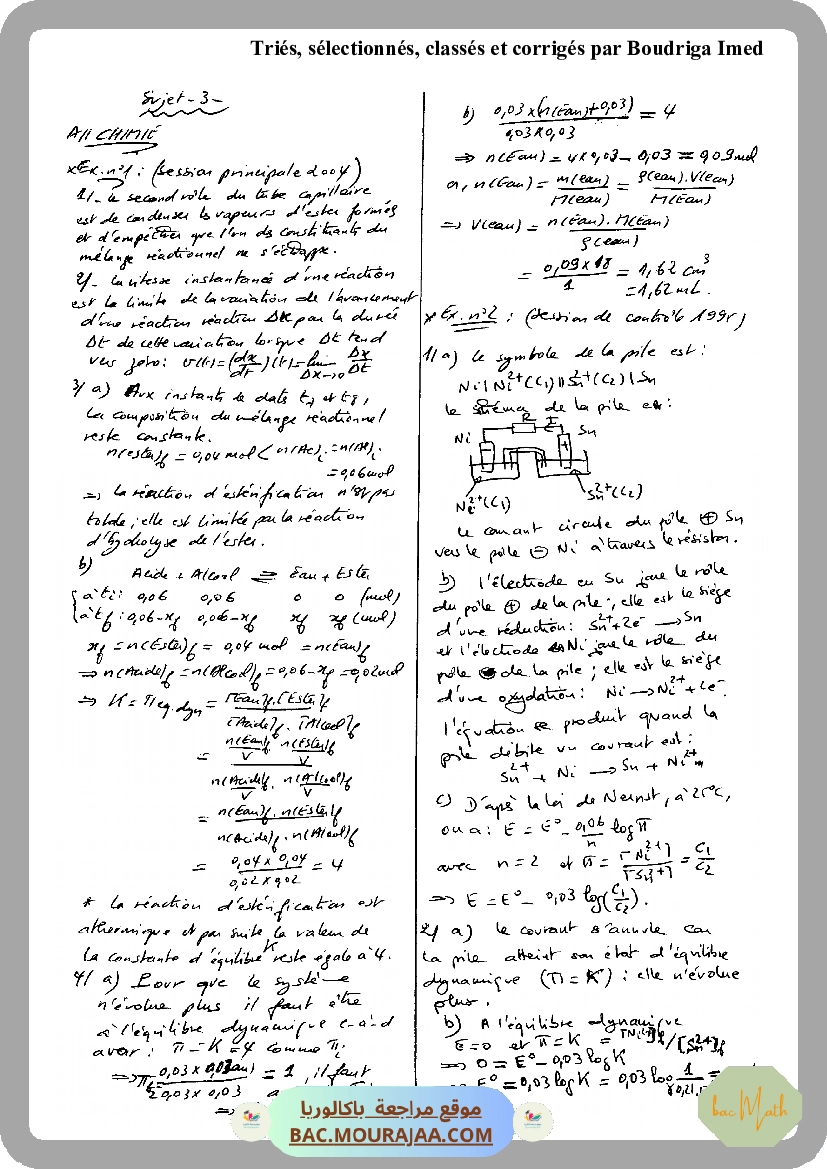 Triés, sélectionnés, classés et corrigés par Boudriga Imed
Sujet-3-
A// CHIMIE
* Ex. n°1 : (session principale 2004)
1/- Le second rôle du tube capillaire
est de condenser les vapeurs d'ester formés
et d'empêcher que l'un des constituants du
mélange réactionnel ne s'échappe.
2/- La vitesse instantanée d'une réaction
est la limite de la variation de l'avancement
d'une réaction réaction Δx par la durée
Δt de cette variation lorsque Δt tend
vers zéro : v(t) = (dx/dt)(t) = lim Δx/Δt
Δx→0
3/ a) Aux instants de date t7 et t8,
la composition du mélange réactionnel
reste constante.
n(ester)f = 0,04 mol < n(Ac)i = n(Al)i
= 0,06 mol
⇒ la réaction d'estérification n'est pas
totale ; elle est limitée par la réaction
d'hydrolyse de l'ester.
b)
Acide + Alcool ⇌ Eau + Ester
à ti : 0,06 0,06 0 0 (mol)
à tf : 0,06-xf 0,06-xf xf xf (mol)
xf = n(Ester)f = 0,04 mol = n(Eau)f
⇒ n(Acide)f = n(Alcool)f = 0,06-xf = 0,02 mol
⇒ K = πeq.dyn = [Eau]f.[Ester]f
[Acide]f.[Alcool]f
= n(Eau)f/V n(Ester)f/V
n(Acide)f/V . n(Alcool)f/V
= n(Eau)f . n(Ester)f
n(Acide)f . n(Alcool)f
= 0,04 x 0,04 = 4
0,02 x 0,02
* La réaction d'estérification est
athermique et par suite la valeur de
la constante d'équilibre K reste égale à 4.
4/ a) Pour que le système
n'évolue plus il faut être
à l'équilibre dynamique c-à-d
avoir : π = K = 4 comme πi
= 1, il faut
0,03 x 0,03
b) 0,03 x (n(Eau)+0,03) = 4
0,03 x 0,03
⇒ n(Eau) = 4 x 0,03 - 0,03 = 0,09 mol
or, n(Eau) = m(eau)/M(eau) = ρ(eau).V(eau)/M(Eau)
⇒ V(eau) = n(Eau).M(Eau)
ρ(eau)
= 0,09 x 18 = 1,62 cm³
1 = 1,62 mL.
* Ex. n°2 : (Session de contrôle 199)
1/ a) Le symbole de la pile est :
Ni | Ni²⁺(C1) || Sn²⁺(C2) | Sn
le schéma de la pile est :
R I
Ni Sn
Ni²⁺(C1) Sn²⁺(C2)
Le courant circule du pôle ⊕ Sn
vers le pôle ⊖ Ni à travers le résistor.
b) l'électrode en Sn joue le rôle
du pôle ⊕ de la pile ; elle est le siège
d'une réduction : Sn²⁺ + 2e⁻ → Sn
et l'électrode Ni joue le rôle du
pôle ⊖ de la pile ; elle est le siège
d'une oxydation : Ni → Ni²⁺ + 2e⁻.
l'équation se produit quand la
pile débite un courant est :
Sn²⁺ + Ni → Sn + Ni²⁺
c) D'après la loi de Nernst, à 25°C,
on a : E = E° - 0,06/n log π
avec n = 2 et π = [Ni²⁺]/[Sn²⁺] = C1/C2
⇒ E = E° - 0,03 log(C1/C2).
2/ a) le courant s'annule car
la pile atteint son état d'équilibre
dynamique (π = K) : elle n'évolue
plus.
b) A l'équilibre dynamique
E = 0 et π = K = [Ni²⁺]f/[Sn²⁺]f
⇒ 0 = E° - 0,03 log K
E° = 0,03 log K = 0,03 log 1
موقع مراجعة باكالوريا
BAC.MOURAJAA.COM
bac Math